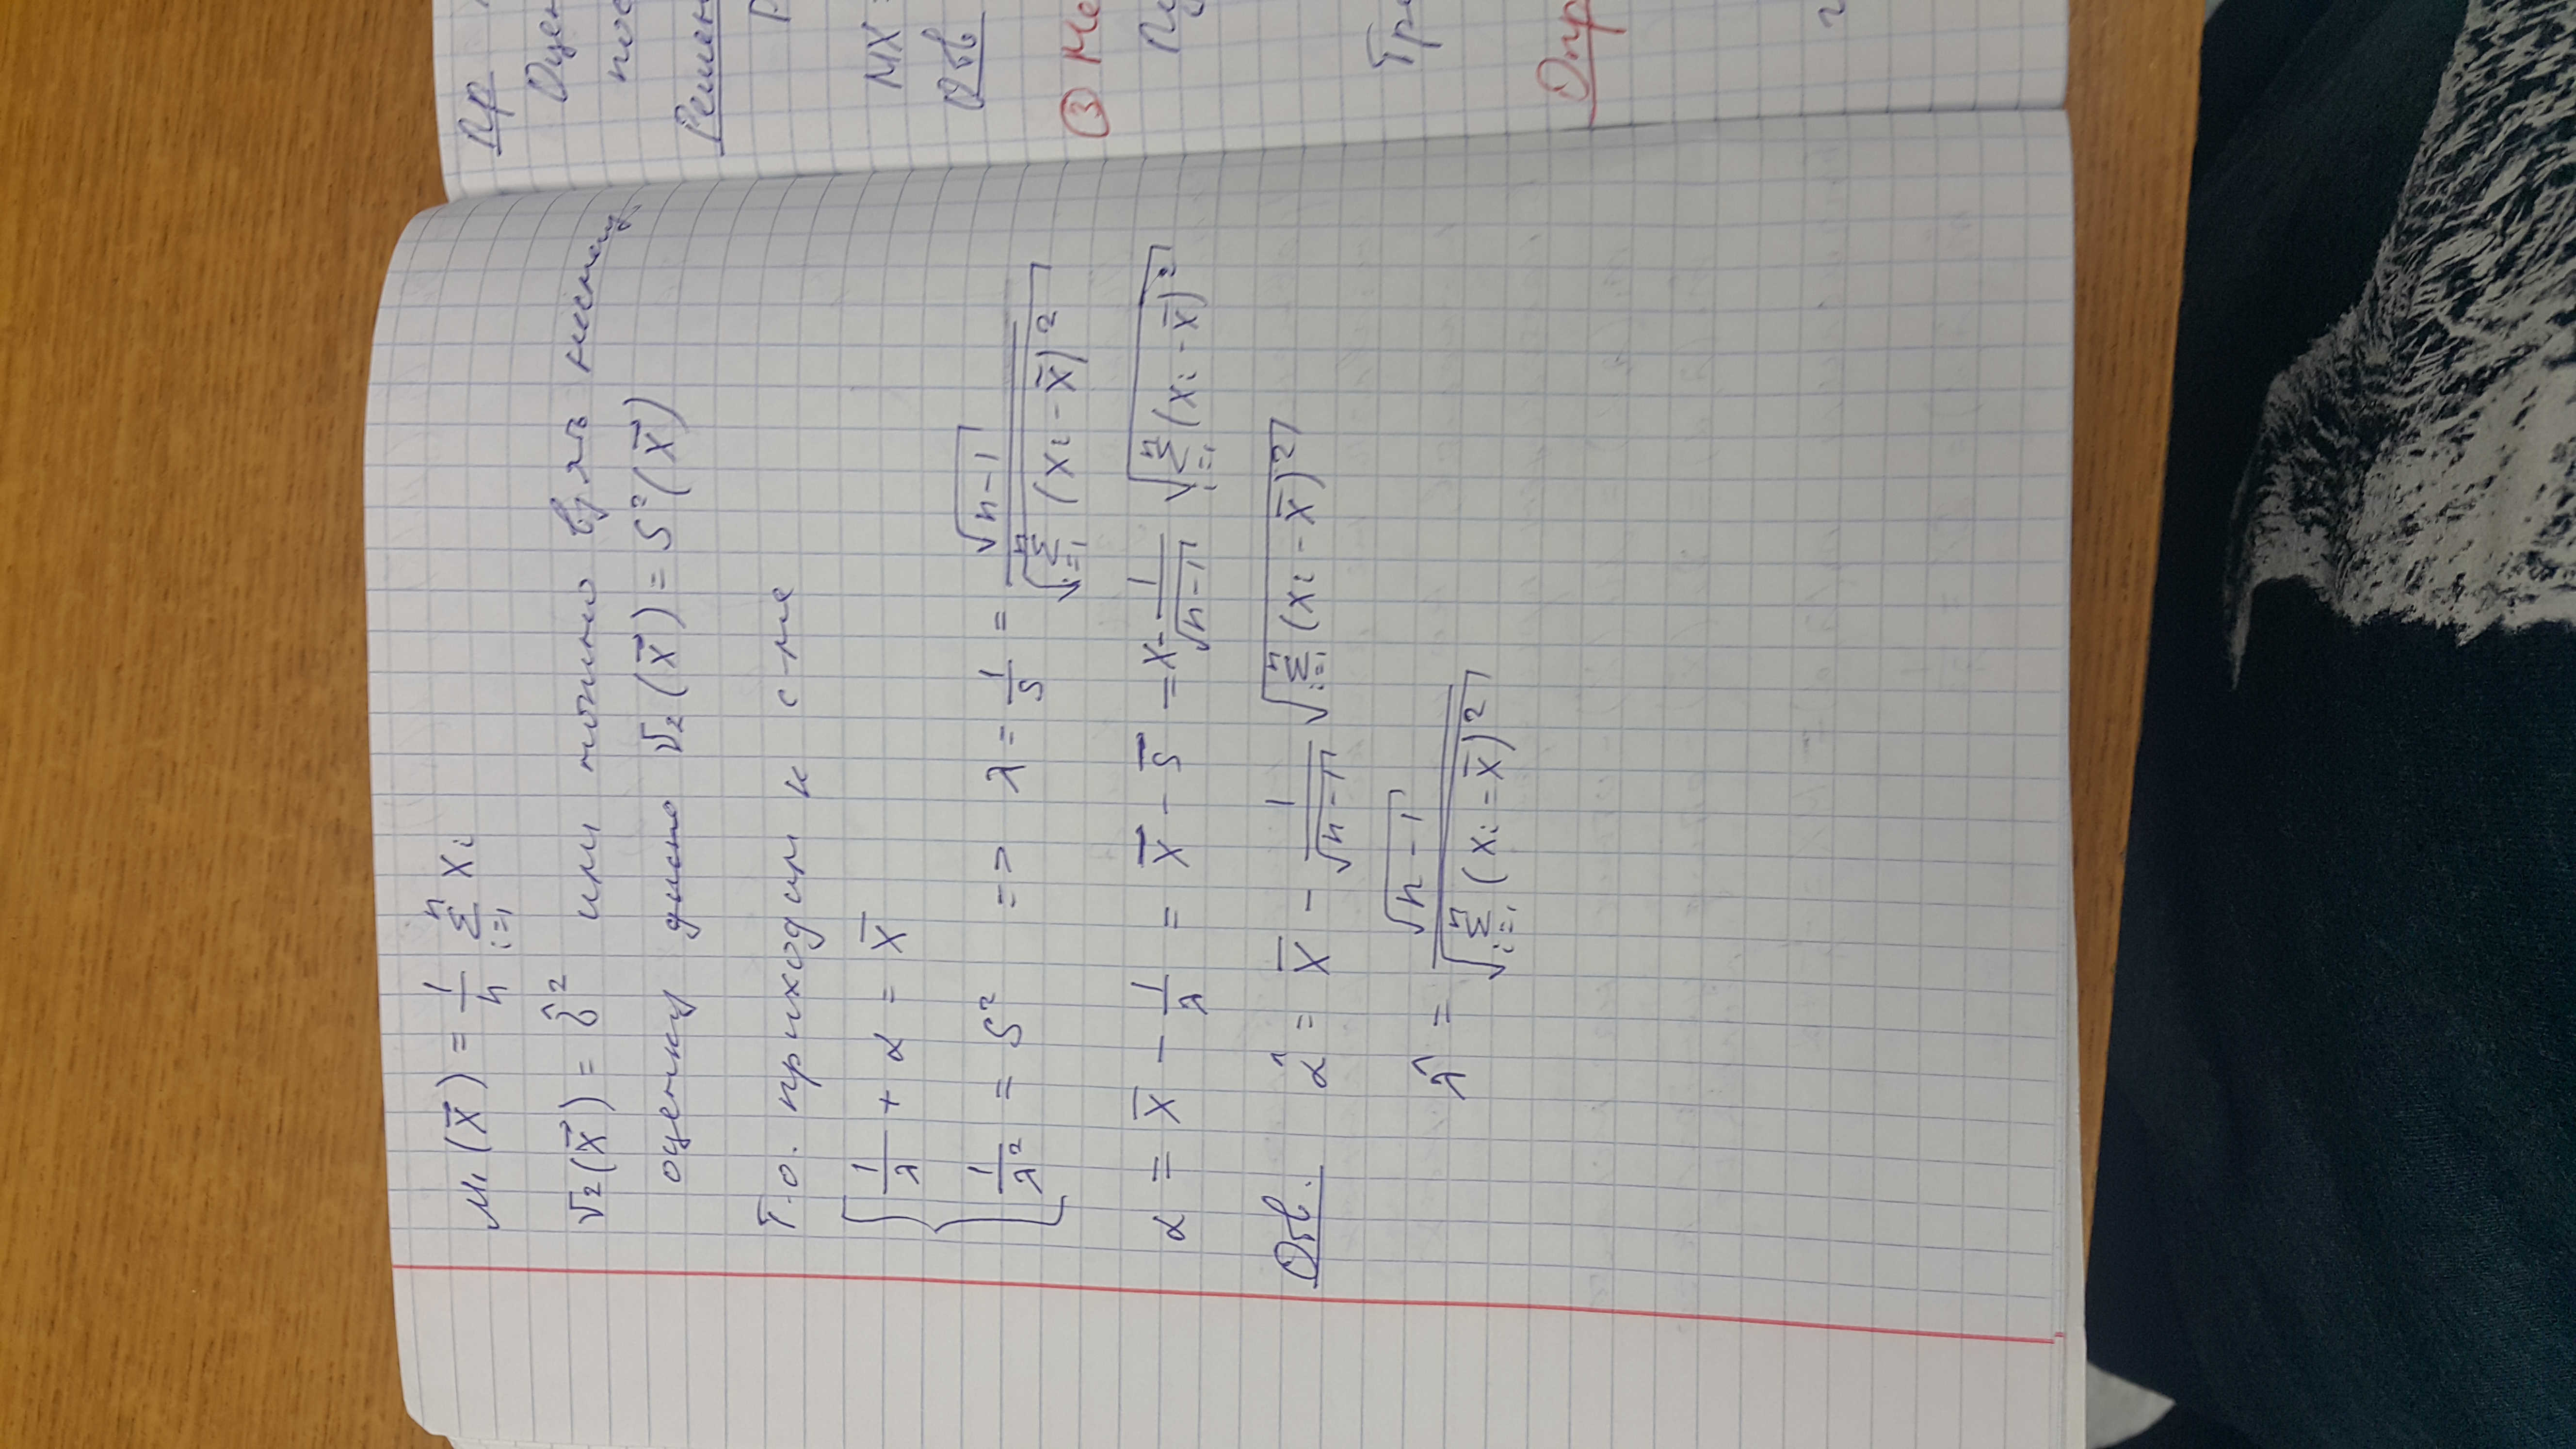 μ₁(X⃗) = 1/n Σ_{i=1}^{n} Xᵢ
ν̂₂(X⃗) = σ̂² или можно взять несмещ.
оценку дисп ν̂₂(X⃗) = S²(X⃗)
Т.о. приходим к с-ме
{ 1/λ + α = X̄
1/λ² = S² => λ = 1/S = √(n-1) / √(Σ_{i=1}^{n} (Xᵢ - X̄)²)
α = X̄ - 1/λ = X⃗ - S⃗ = X - 1/√(n-1) √(Σ_{i=1}^{n} (Xᵢ - X̄)²)
Отв. α̂ = X̄ - 1/√(n-1) √(Σ_{i=1}^{n} (Xᵢ - X̄)²)
λ̂ = √(n-1) / √(Σ_{i=1}^{n} (Xᵢ - X̄)²)
Пр
Оцен
пос
Решен
MX
Отв
③ Ме
Пу
Тре
Опр